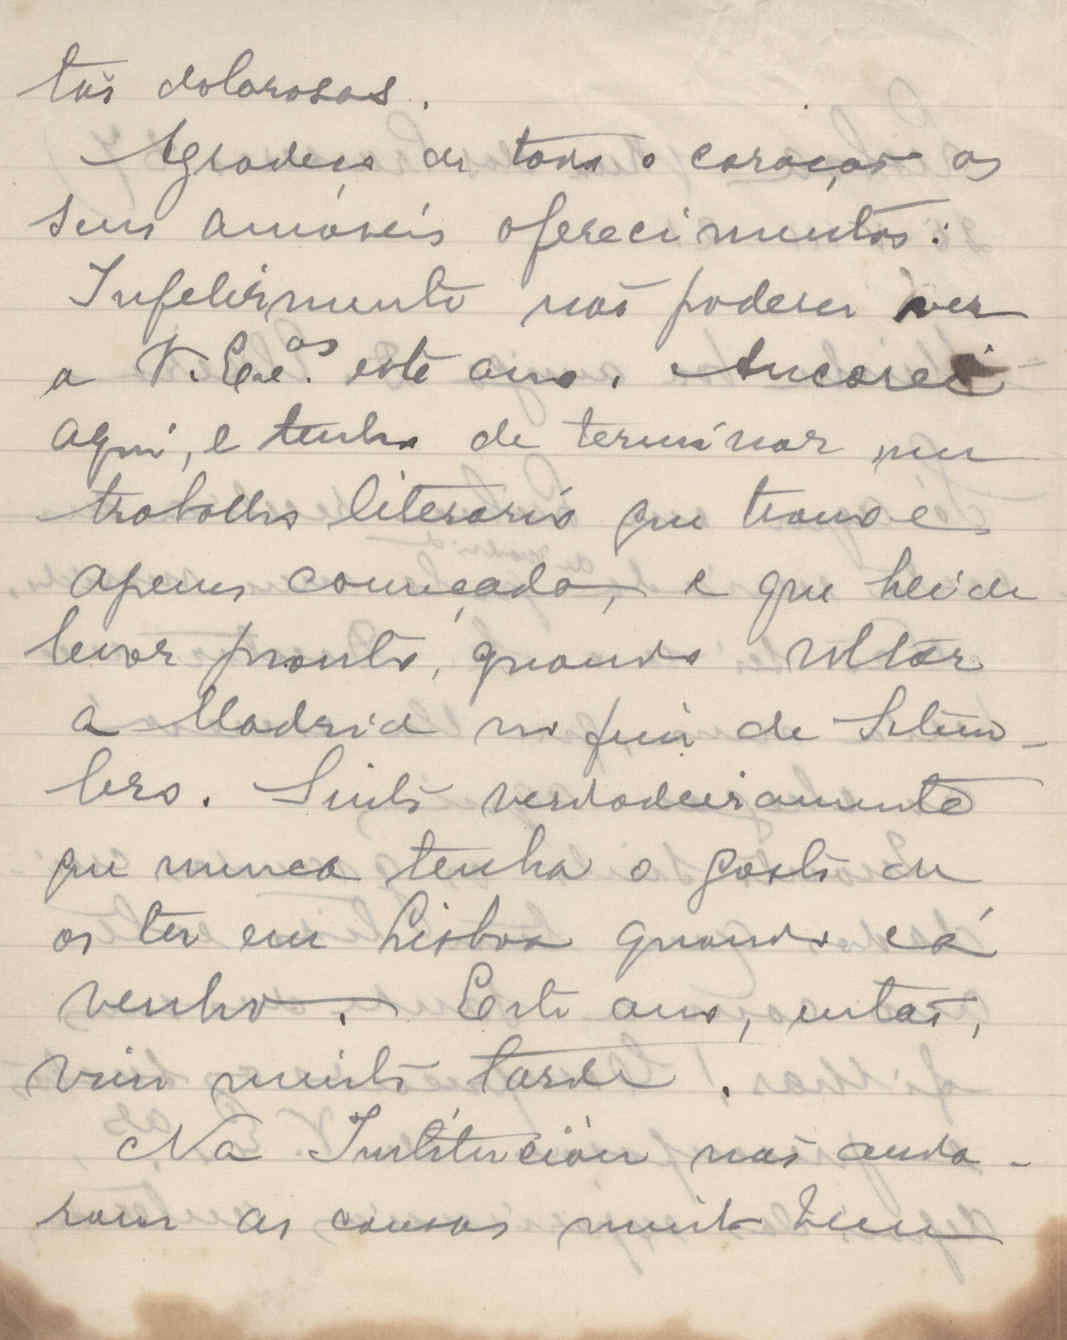 tão dolorosas.
Agradeço de todo o coração os
seus amáveis oferecimentos.
Infelizmente não poderei ver
a V. Ex.as este ano. Ancorei
aqui, e tenho de terminar um
trabalho literário que trouxe
apenas começado, e que hei de
levar pronto, quando voltar
a Madrid no fim de Setem-
bro. Sinto verdadeiramente
que nunca tenha o gosto de
os ter em Lisboa quando cá
venho. Este ano, então,
vim muito tarde.
Na Institución não anda-
ram as cousas muito bem